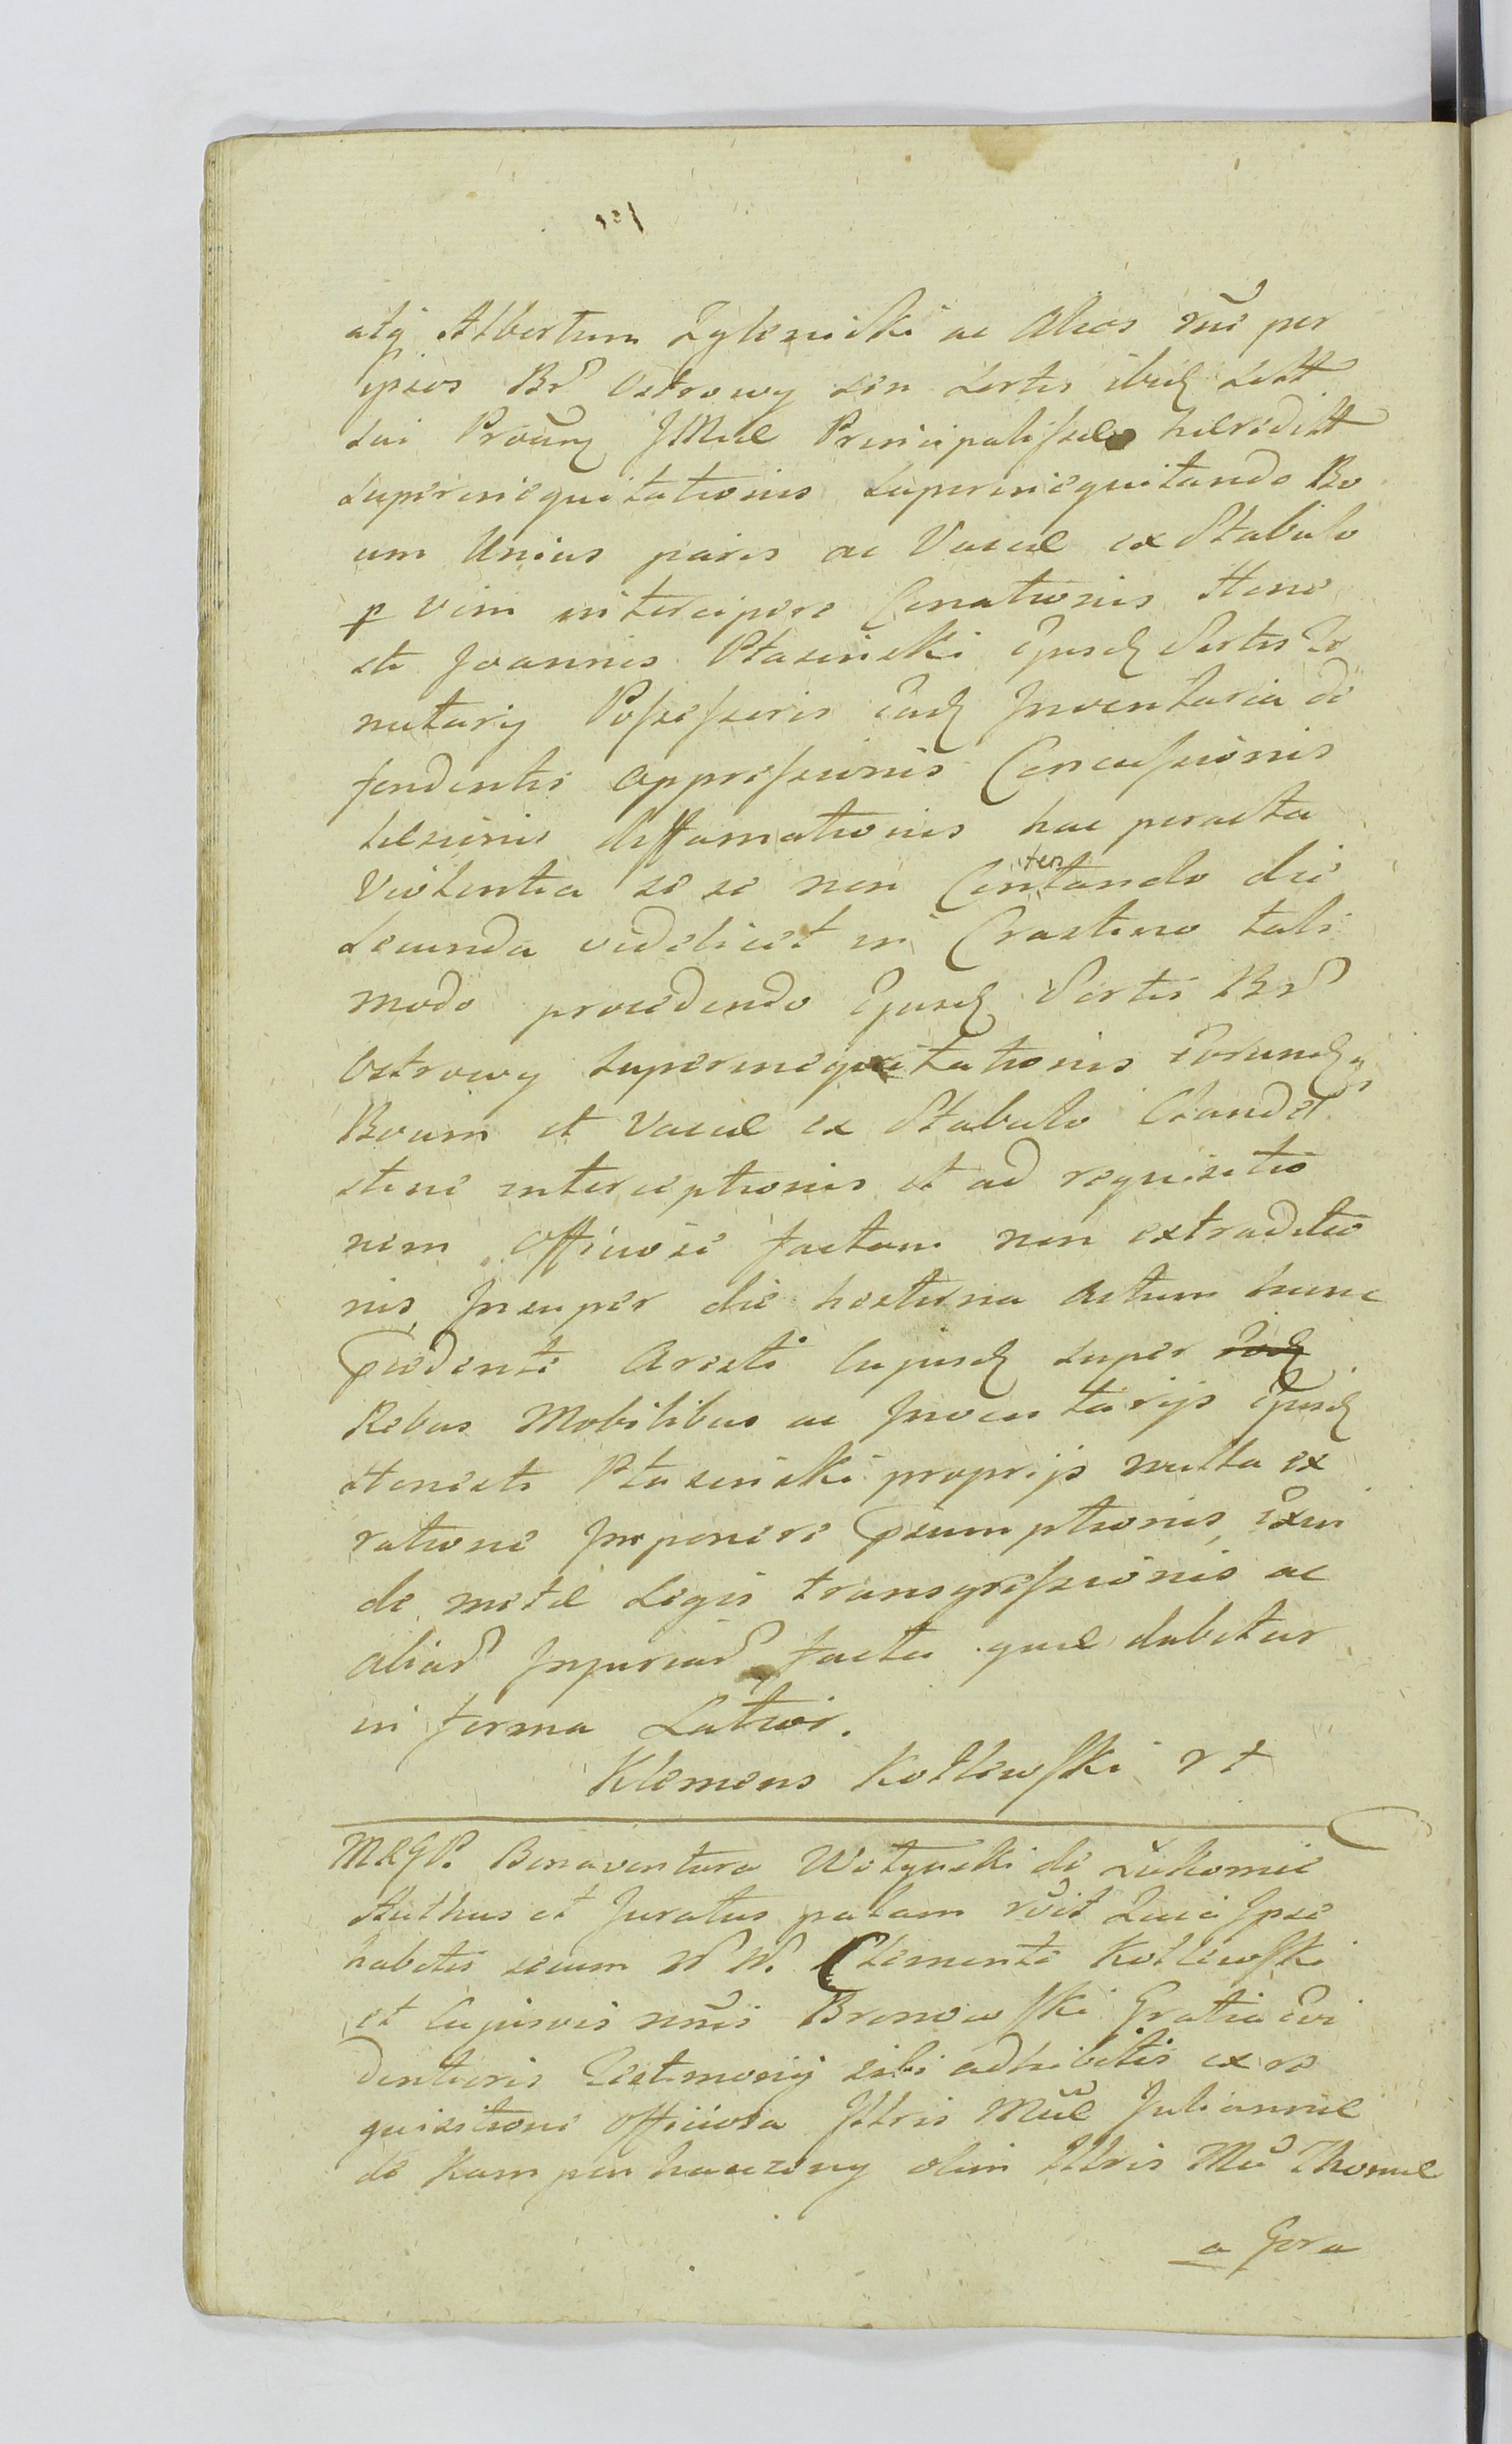 atq Albertum Zylenidki ac Alios rñe per
ipsos Br̃ Ostrowy sen Sortis ibidq Sostt
sui Proũq JMcæ Principalissæ hæreditt
superinequitationis superinequitando Bo
um Unius paris ac Vaccæ ex Stabulo
p vim intercipere Conationis Hone
sti Joannis Ptasinski Ejusdq Sortis Te
nutarij Possessoris Eadq Inventaria de
fendentis oppressionis Concussionis
Læsionis diffamationis hac peracta
Violentia se se non Contentando die
Secunda videlicet in Crastino tali
modo procedendo Ejusdq Sortis Br̃
Ostrowy superinequitationis Eorundq
Boum et Vaccæ ex Stabulo Clande
stine interceptionis et ad requisitio
nem officiose factam non extraditio
nis, Insuper die hesterna Actum hunc
Pcedente Aresti Cujusdq super
Rebus Mobilibus ac Inventarijs Ejusdq
Honesti Ptasinski proprijs nulla ex
ratione Imponere Psumptionis, Exin
de metæ Legis transgressionis ac
aliar̃ Injuriar̃ facta quæ dabitur
in forma Latior.
Klemens Kotlewski
MRGP. Bonaventura Wotynski de Łukomie
Authus et Juratus palam rẽit Quia Ipse
habitis secum N N. Clemente Kotlewski
et Cujusvis nñis Bronowski Gratia Evi
dentioris Testmonij sibi adhibitis ex re
quisitione officiosa Jllris Mcæ Juliannæ
de Kampenhauzony olim Illris Mci Thomæ
a Gora